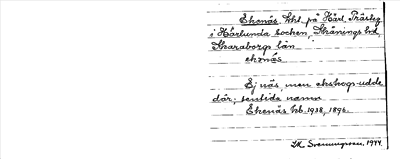 Ekenäs, lht på Härl. Prästeg.
i Härlunda socken, Skånings hd,
Skaraborgs län
ekənäs
Ej näs, men ekskogs-udde
där; sentida namn
Ekenäs hb. 1938, 1896.
1944.